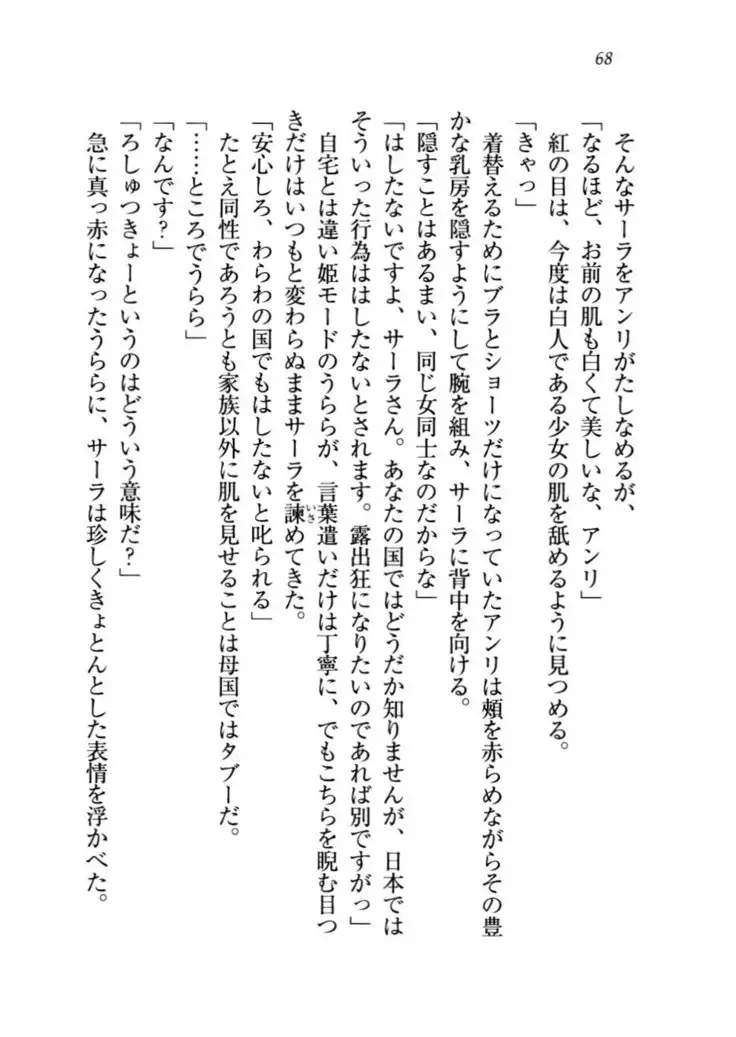 68
そんなサーラをアンリがたしなめるが、
「なるほど、お前の肌も白くて美しいな、アンリ」
紅の目は、今度は白人である少女の肌を舐めるように見つめる。
「きゃっ」
着替えるためにブラとショーツだけになっていたアンリは頬を赤らめながらその豊
かな乳房を隠すようにして腕を組み、サーラに背中を向ける。
「隠すことはあるまい、同じ女同士なのだからな」
「はしたないですよ、サーラさん。あなたの国ではどうだか知りませんが、日本では
そういった行為ははしたないとされます。露出狂になりたいのであれば別ですがっ」
自宅とは違い姫モードのうららが、言葉遣いだけは丁寧に、でもこちらを睨む目つ
きだけはいつもと変わらぬままサーラを諫めてきた。
「安心しろ、わらわの国でもはしたないと叱られる」
たとえ同性であろうとも家族以外に肌を見せることは母国ではタブーだ。
「……ところでうらら」
「なんです?」
「ろしゅつきょーというのはどういう意味だ?」
急に真っ赤になったうららに、サーラは珍しくきょとんとした表情を浮かべた。